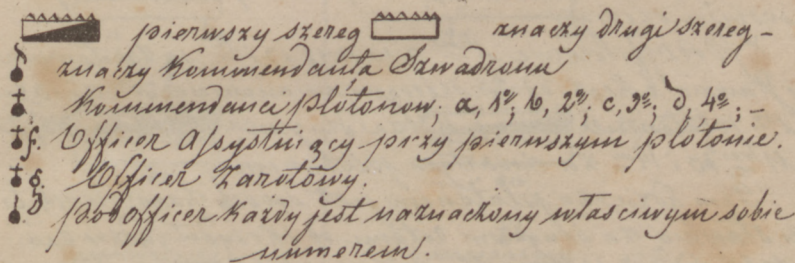 pierwszy szereg znaczy drugi szereg -
znaczy Kommendanta Szwadronu
Kommendanci plótonow; a, 1º; b, 2º; c, 3º; d, 4º; -
f. Officer Assystuiący przy pierwszym plótonie.
g. Officer Zarotowy.
podofficer Każdy jest naznaczony własciwym sobie
numerem.